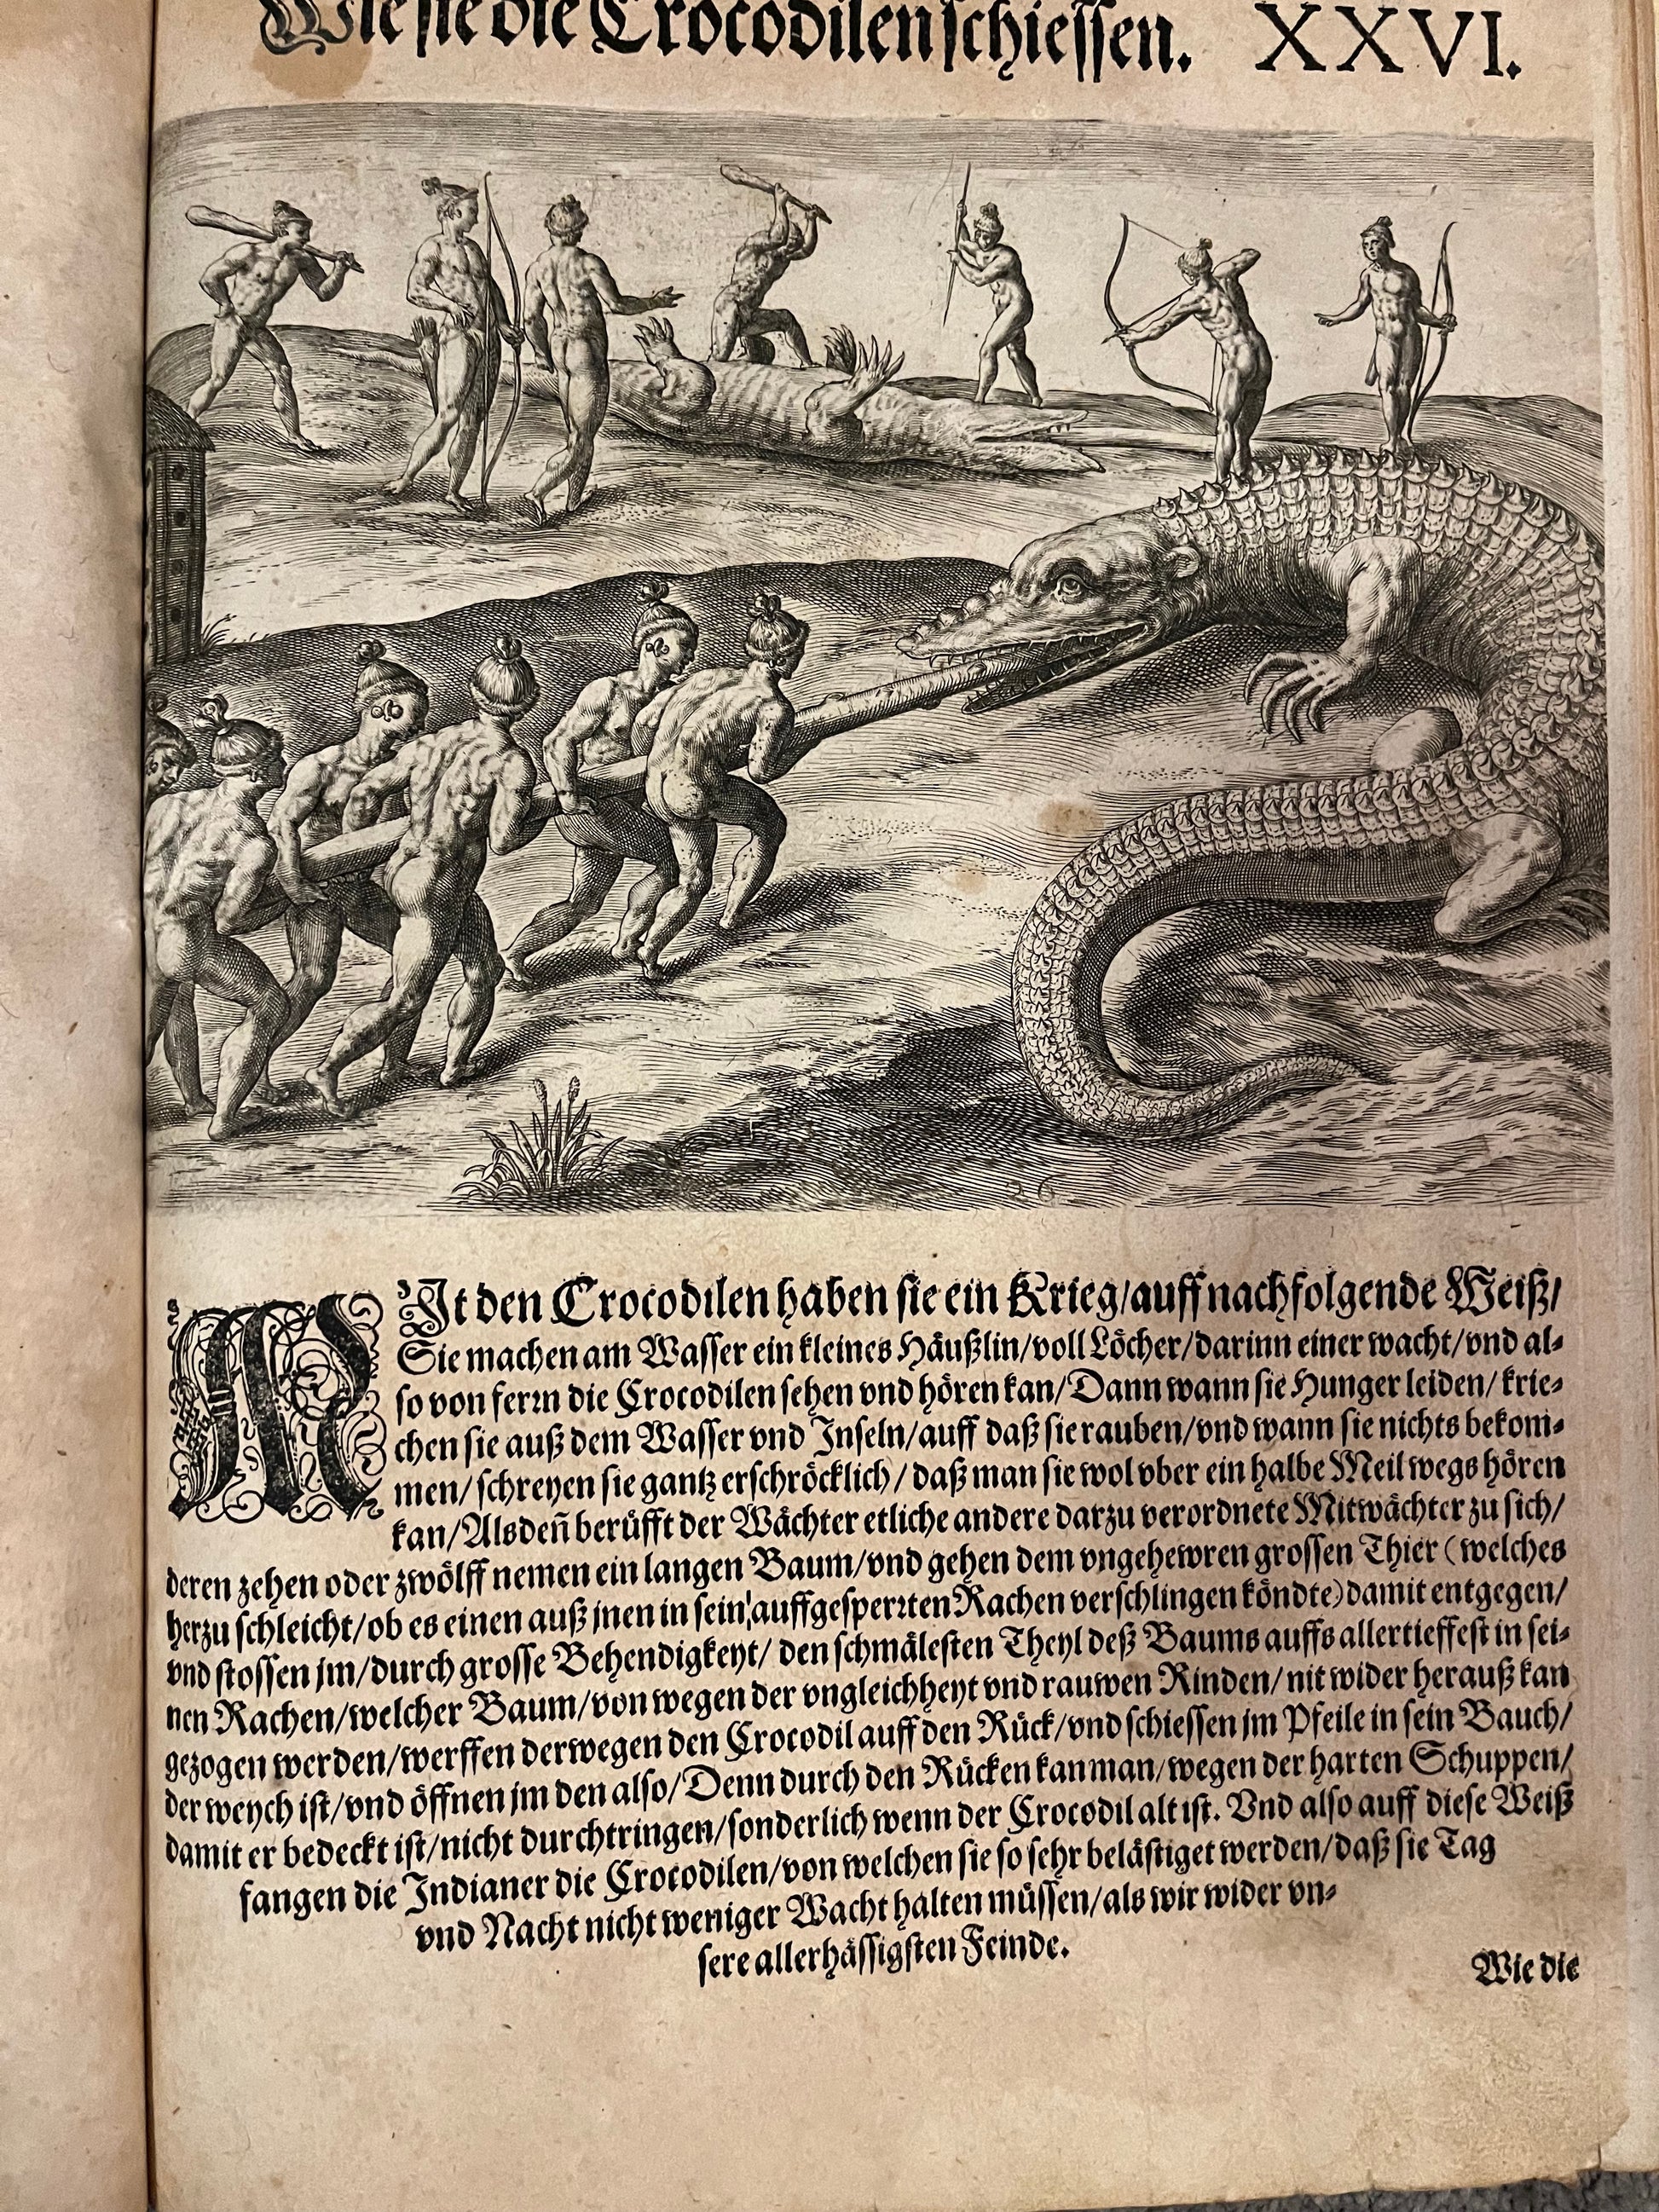 Wie sie die Crocodilen schiessen. XXVI.
MIt den Crocodilen haben sie ein Krieg/auff nachfolgende Weiß/
Sie machen am Wasser ein kleines Häußlin/voll Löcher/darinn einer wacht/vnd al-
so von ferrn die Crocodilen sehen vnd hören kan/Dann wann sie Hunger leiden/krie-
chen sie auß dem Wasser vnd Inseln/auff daß sie rauben/vnd wann sie nichts bekom-
men/schreyen sie gantz erschröcklich/daß man sie wol vber ein halbe Meil wegs hören
kan/Alsdeñ berüfft der Wächter etliche andere darzu verordnete Mitwächter zu sich/
deren zehen oder zwölff nemen ein langen Baum/vnd gehen dem vngehewren grossen Thier (welches
herzu schleicht/ob es einen auß jnen in sein auffgesperrten Rachen verschlingen köndte) damit entgegen/
vnd stossen jm/durch grosse Behendigkeyt/den schmälesten Theyl deß Baums auffs allertieffest in sei-
nen Rachen/welcher Baum/von wegen der vngleichheyt vnd rauwen Rinden/nit wider herauß kan
gezogen werden/werffen derwegen den Crocodil auff den Rück/vnd schiessen jm Pfeile in sein Bauch/
der weych ist/vnd öffnen jm den also/Denn durch den Rücken kan man/wegen der harten Schuppen/
damit er bedeckt ist/nicht durchtringen/sonderlich wenn der Crocodil alt ist. Vnd also auff diese Weiß
fangen die Indianer die Crocodilen/von welchen sie so sehr belästiget werden/daß sie Tag
vnd Nacht nicht weniger Wacht halten müssen/als wir wider vn-
sere allerhässigsten Feinde.
Wie die